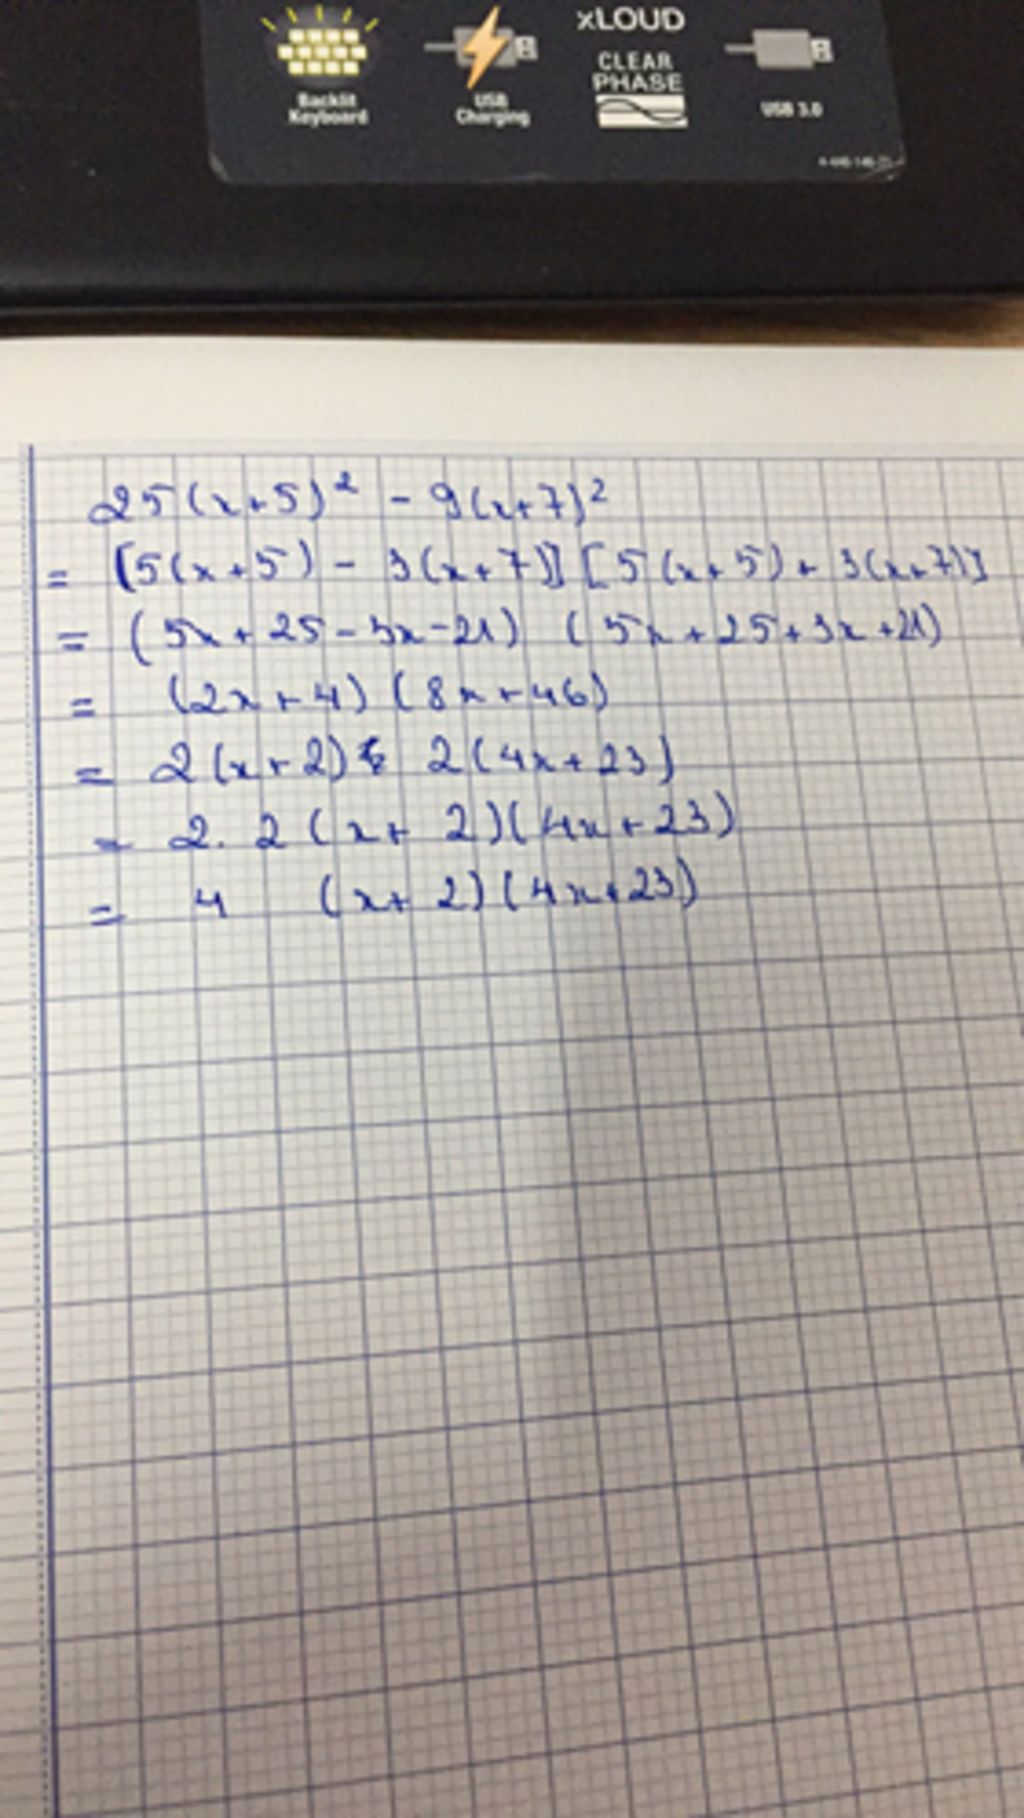 xLOUD
CLEAR
PHASE
Backlit
Keyboard
USB
Charging
USB 3.0
25(x+5)² - 9(x+7)²
= [5(x+5) - 3(x+7)] [5(x+5) + 3(x+7)]
= (5x+25-3x-21) (5x+25+3x+21)
= (2x+4) (8x+46)
= 2(x+2) 2(4x+23)
= 2. 2 (x+ 2)(4x+23)
= 4 (x+ 2)(4x+23)